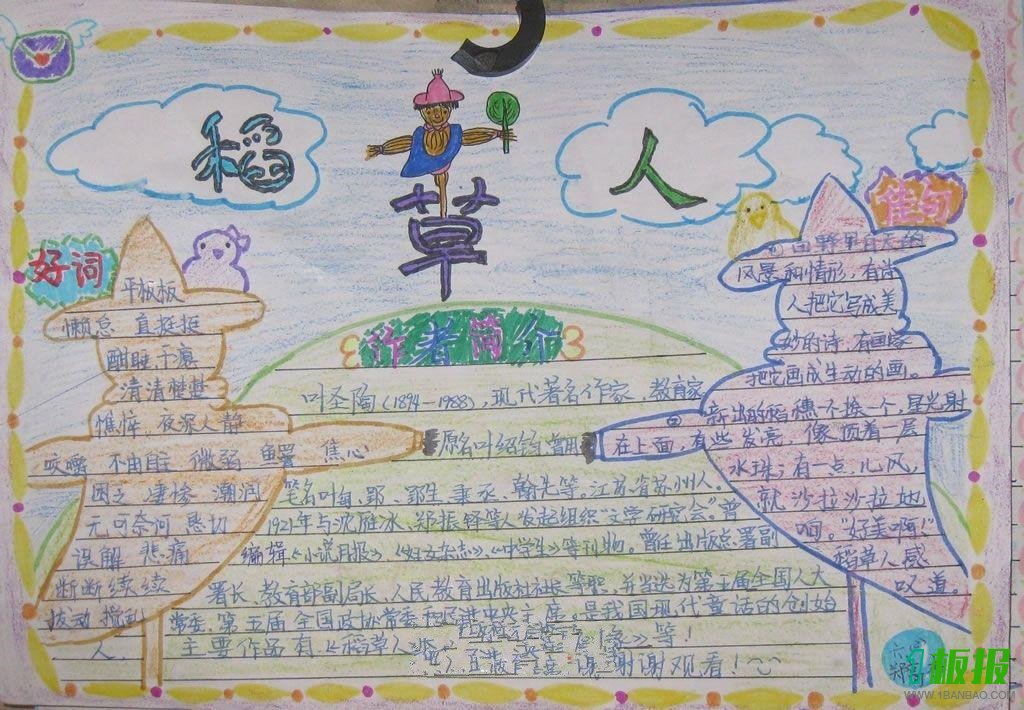 稻草人
好词
平板板
懒怠 直挺挺
酣睡 干瘪
清清楚楚
憔悴 夜深人静
咬嚼 不由自主 微弱 鱼罾 焦心
困乏 凄惨 潮润
无可奈何 恳切
误解 悲痛
断断续续
拨动 搅乱
作者简介
叶圣陶(1894—1988),现代著名作家、教育家
原名叶绍钧,曾用
笔名叶甸、郢、郢生、秉丞、翰先等。江苏省苏州人。
1921年与沈雁冰、郑振铎等人发起组织“文学研究会。”曾
编辑《小说月报》、《妇女杂志》、《中学生》等刊物。曾任出版总署副
署长、教育部副局长、人民教育出版社社长等职,并当选为第五届全国人大
常委、第五届全国政协常委和民进中央主席。是我国现代童话的创始
人,主要作品有《稻草人》
》等!
谢谢观看!
佳句
①田野里白天的
风景和情形,有诗
人把它写成美
妙的诗,有画家
把它画成生动的画。
②新出的稻穗一个挨一个,星光射
在上面,有些发亮,像顶着一层
水珠;有一点儿风,
就沙拉沙拉地
响。“好美啊!”
稻草人感
叹道。
板报
WWW.1BANBAO.COM